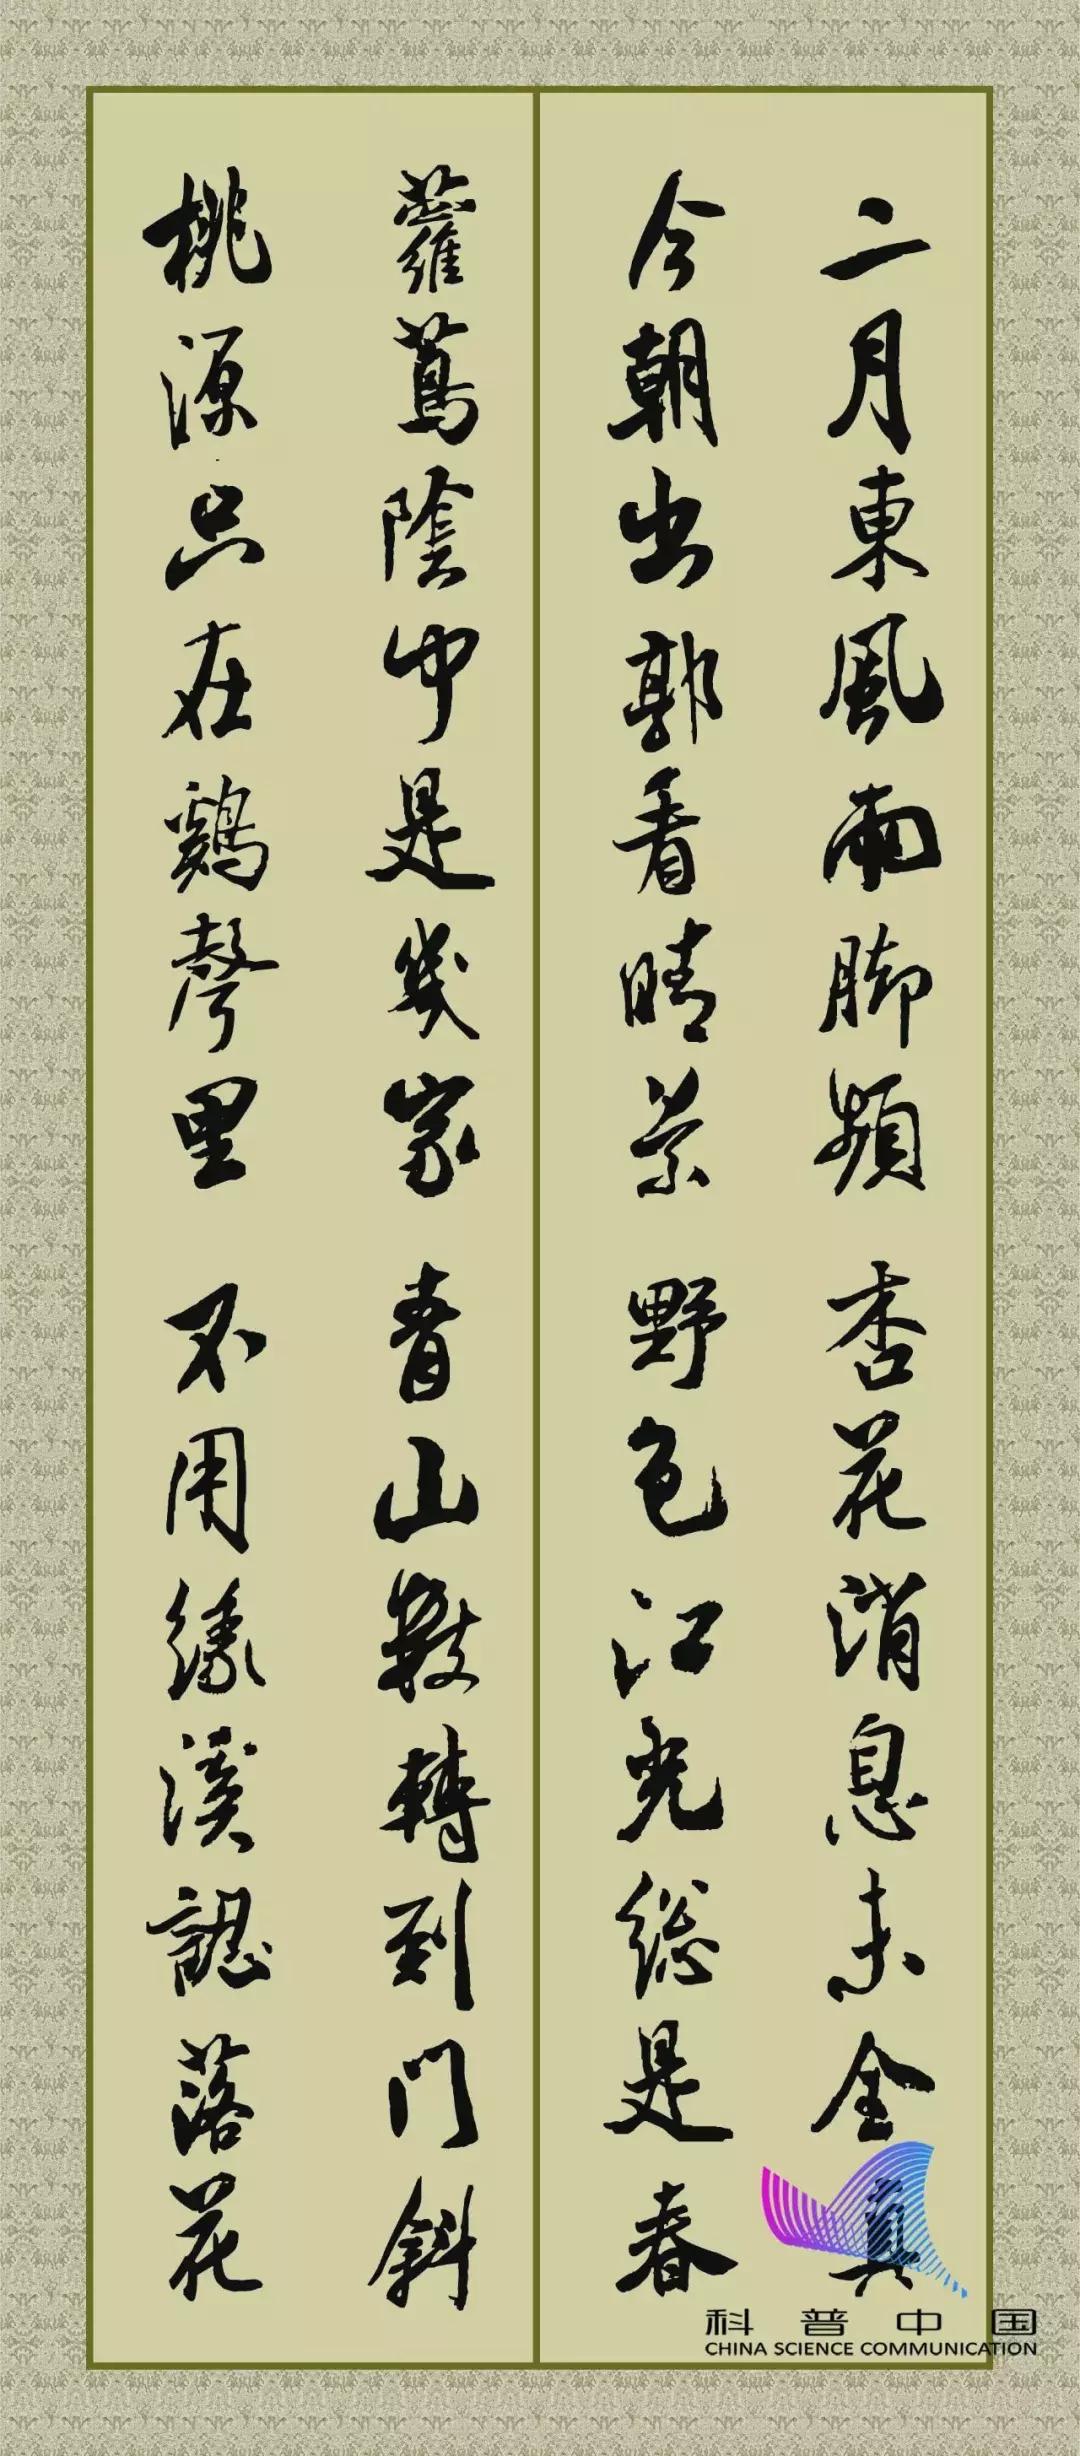 二月東風雨脚頻 杏花消息未全真
今朝出郭看晴景 野色江光総是春
蘿蔦陰中是幾家 青山數轉到門斜
桃源只在鷄聲里 不用緣溪認落花
科普中国
CHINA SCIENCE COMMUNICATION